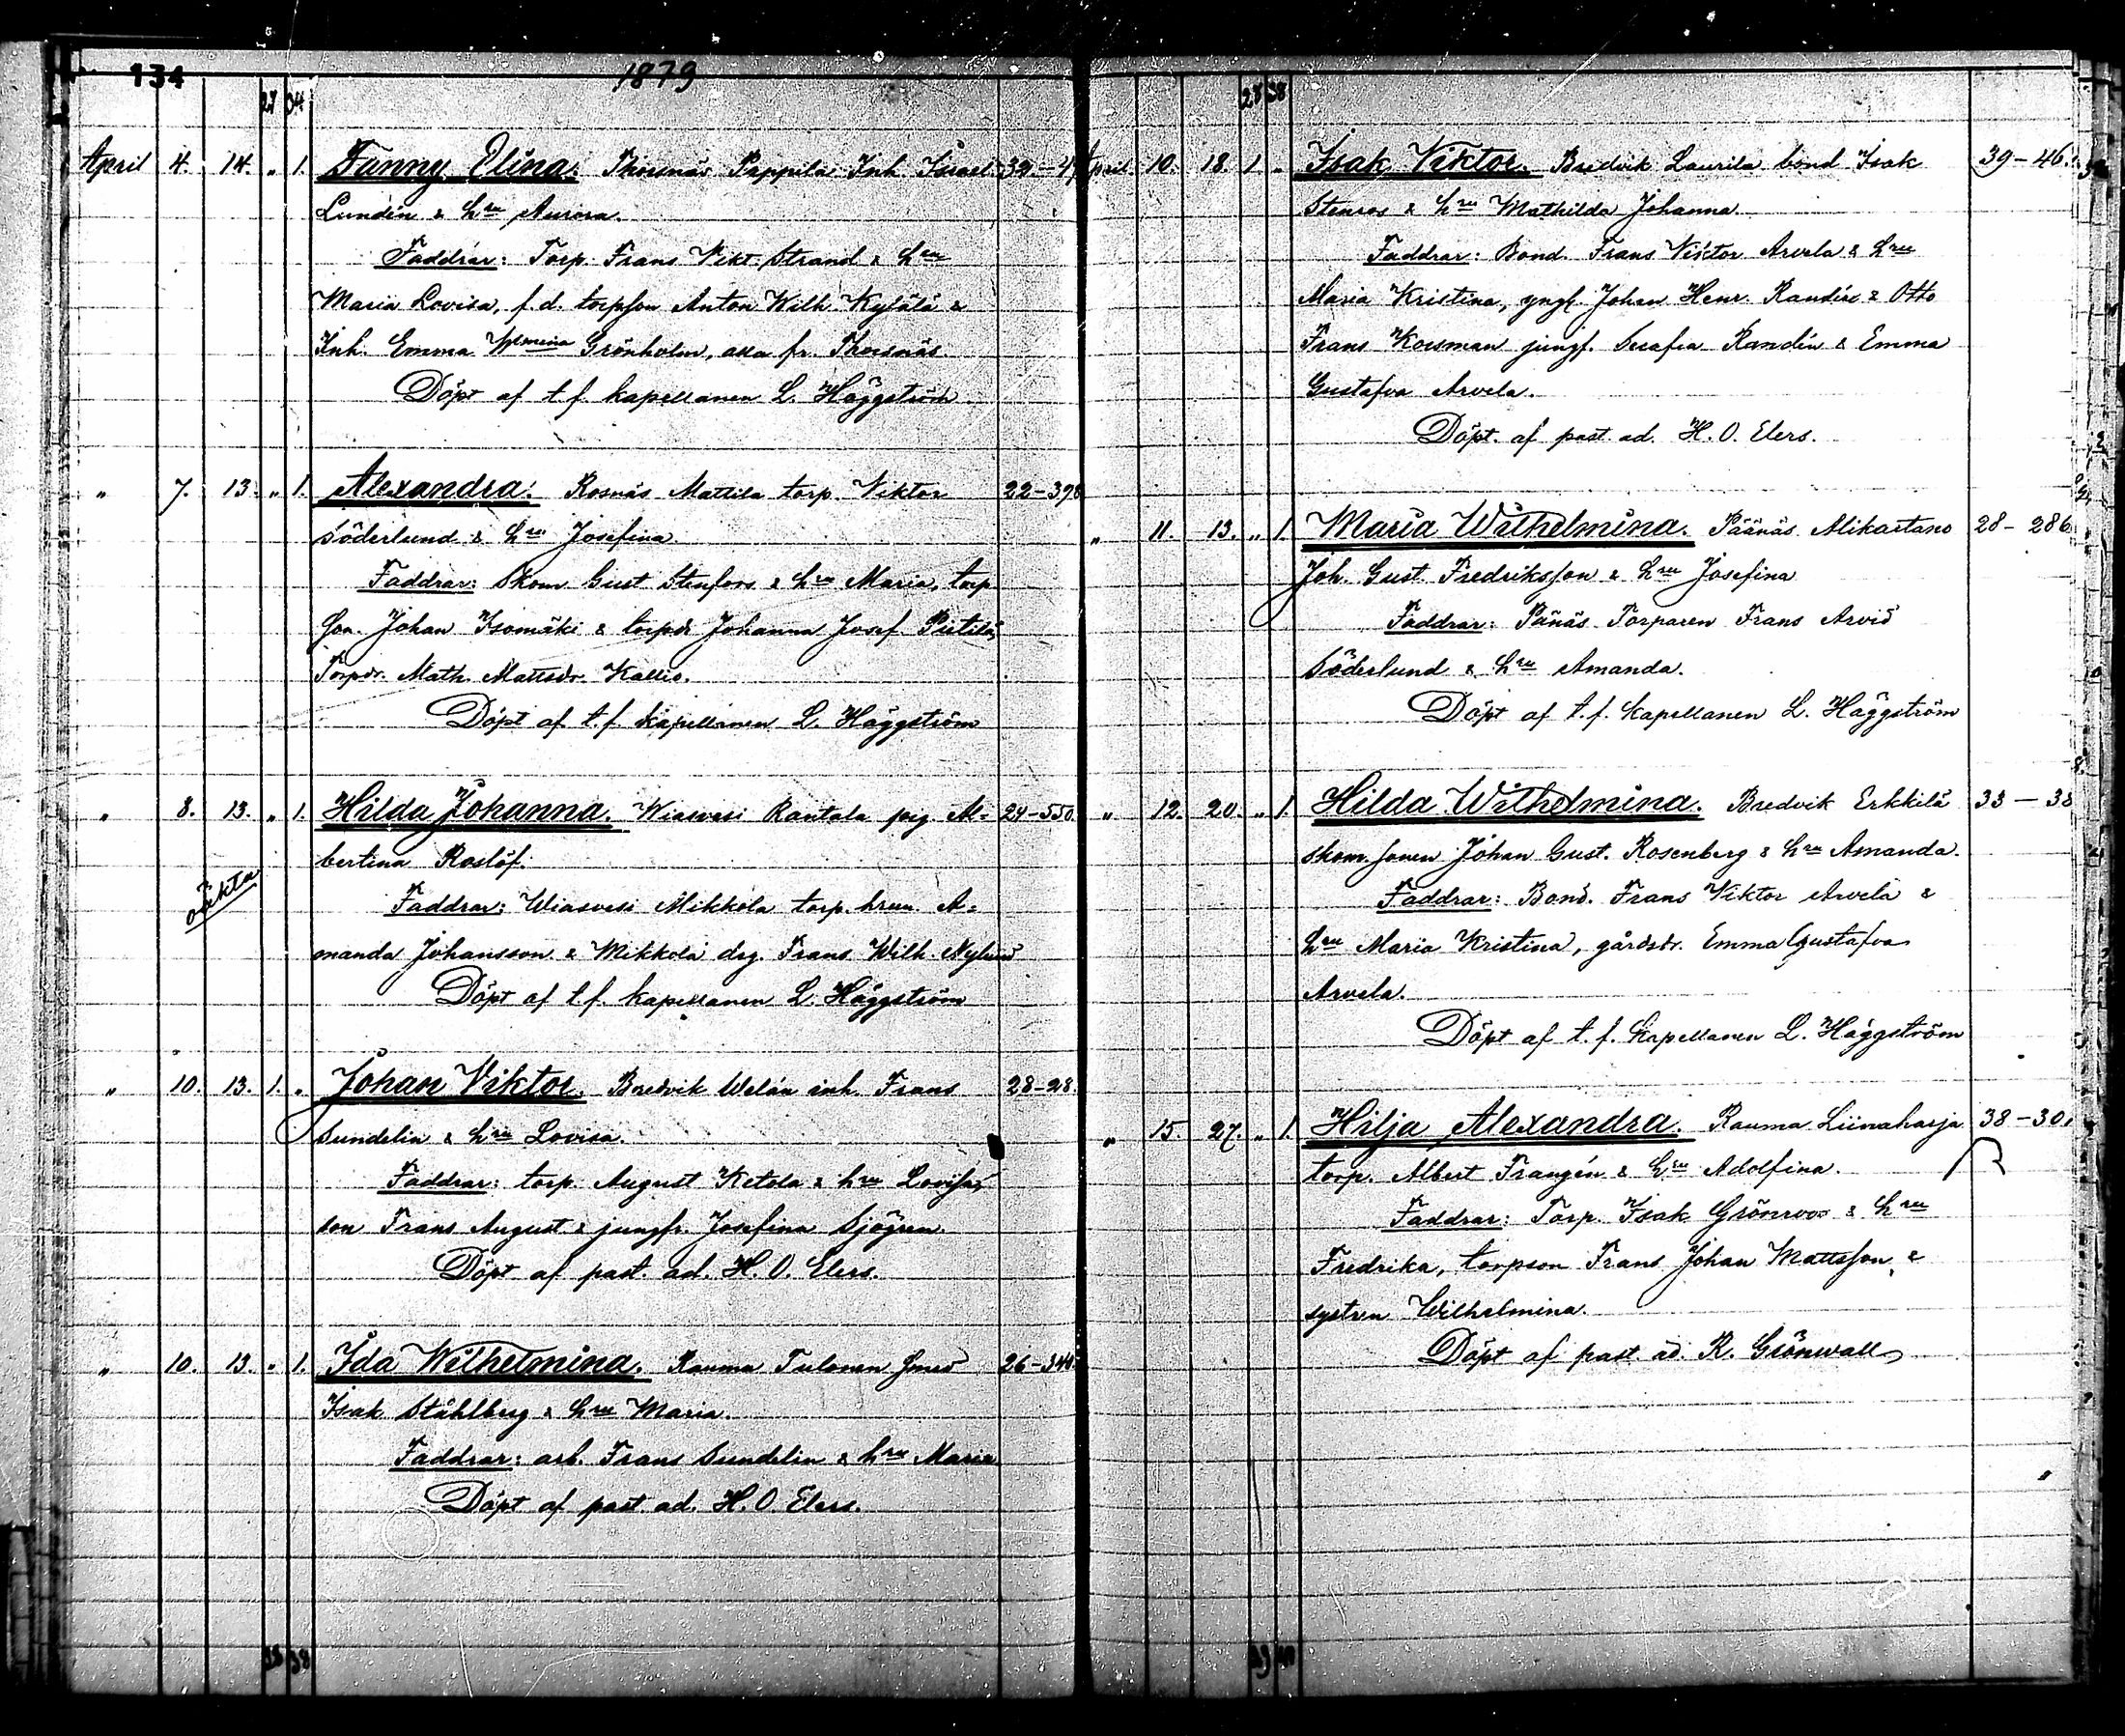 134
1879
27 34
April 4. 14. " 1. Fanny Elina. Thorsnäs Pappila Inh. Israel 32-4
Lundén & hru Aurora.
Faddrar: Torp. Frans Vikt. Strand & hru
Maria Lovisa, f.d. torpson Anton Wilh. Kylälä &
Inh. Emma Wlmina Grönholm, alla fr. Thorsnäs
Döpt af t.f. kapellanen L. Häggström
" 7. 13. " 1. Alexandra. Kosnäs Mattila torp. Viktor 22-398
Söderlund & hru Josefina.
Faddrar: Skom Gust Stenfors & hru Maria, torp
son. Johan Isomäki & torpdr Johanna Josef. Pietilä,
Torpdr. Math. Mattsdr. Kallio.
Döpt af t.f. kapellanen L. Häggström
" 8. 13. " 1. Hilda Johanna. Wiasvesi Rantala pig. Al= 24-550
bertina Roslöf.
oäkta
Faddrar: Wiasvesi Mikkola torp. hrun A=
manda Johansson & Mikkola drg. Frans Wilh. Nylund
Döpt af t.f. kapellanen L. Häggström
" 10. 13. 1. " Johan Viktor. Bredvik Welän inh. Frans 28-28.
Sundelin & hru Lovisa.
Faddrar: torp. August Ketola & hru Lovisa,
son Frans August & jungfr. Josefina Sjögren.
Döpt af past. ad. H. O. Elers.
" 10. 13. " 1. Ida Wilhelmina. Rauma Tulonen Smed 26-344
Isak Ståhlberg & hru Maria.
Faddrar: arb. Frans Sundelin & hru Maria
Döpt af past. ad. H. O. Elers.
28 38
April. 10. 18. 1 " Isak Viktor. Bredvik Laurila bond Isak 39-46.
Stenros & hru Mathilda Johanna.
Faddrar: Bond. Frans Viktor Arvela & hru
Maria Kristina, yngl. Johan Henr. Randén & Otto
Frans Korsman jungf. Serafia Randén & Emma
Gustafva Arvela.
Döpt. af past. ad. H. O. Elers.
" 11. 13. " 1. Maria Wilhelmina. Päänäs Alikartano 28-286
Joh. Gust. Fredriksson & hru Josefina
Faddrar: Pänäs Torparen Frans Arvid
Söderlund & hru Amanda.
Döpt af t.f. kapellanen L. Häggström
" 12. 20. " 1. Hilda Wilhelmina. Bredvik Erkkilä 33-38
skom. sonen Johan Gust. Rosenberg & hru Amanda.
Faddrar: Bond. Frans Viktor Arvela &
hru Maria Kristina, gårdsdr. Emma Gustafva
Arvela.
Döpt af t.f. kapellanen L. Häggström
" 15. 27. " 1. Hilja Alexandra. Rauma Liinaharja 38-30.
torp. Albert Frangén & hru Adolfina.
Faddrar: Torp. Isak Grönroos & hru
Fredrika, torpson Frans Johan Mattsson, &
systren Wilhelmina.
Döpt af past. ad. K. Grönwall